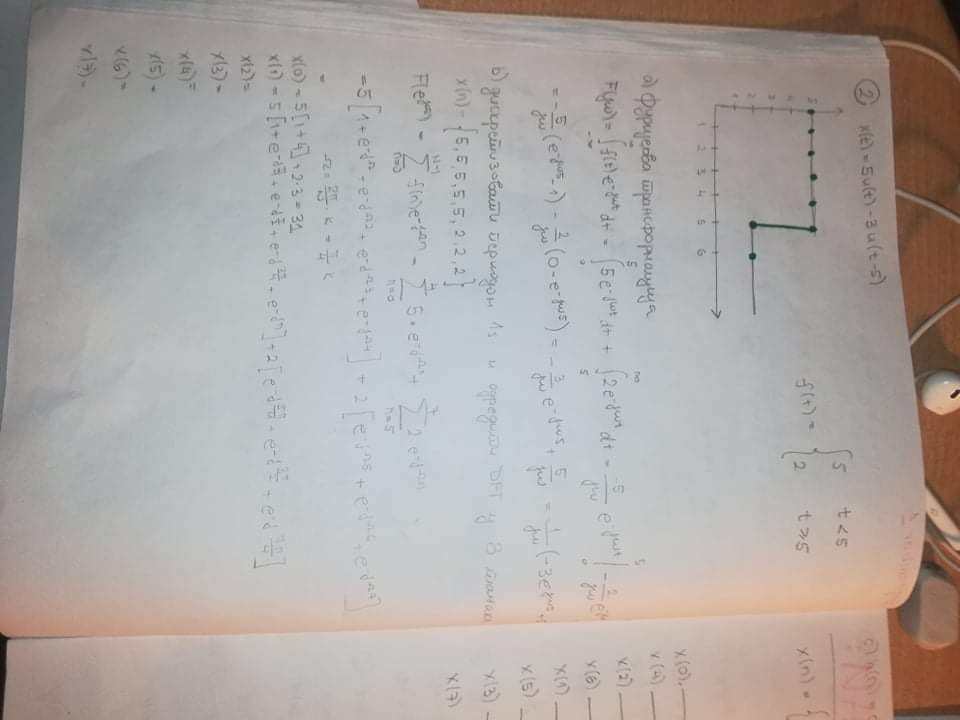 ② x(t) = 5u(t) - 3u(t-5)
5
4
3
2
1
1 2 3 4 5 6
f(t) = { 5 t < 5
2 t ≥ 5
a) фуријеова трансформација
F(jω) = ∫ f(t) e^-jωt dt = ∫ 5 e^-jωt dt + ∫ 2 e^-jωt dt = -5/jω e^-jωt | - 2/jω
= -5/jω (e^-jω5 - 1) - 2/jω (0 - e^-jω5) = -3/jω e^-jω5 + 5/jω = 1/jω (-3e^-jω5 +
b) дискретизовати периодом 1s и одредити DFT у 8 тачака
x(n) = {5, 5, 5, 5, 5, 2, 2, 2}
F(e^jΩ) = Σ f(n) e^-jΩn = Σ 5 · e^-jΩn + Σ 2 e^-jΩn
= 5 [1 + e^-jΩ + e^-jΩ2 + e^-jΩ3 + e^-jΩ4] + 2 [e^-jΩ5 + e^-jΩ6 + e^-jΩ7]
= Ω = 2π/N k = π/4 k
x(0) = 5[1+4] + 2·3 = 31
x(1) = 5 [1 + e^-jπ/4 + e^-jπ/2 + e^-j3π/4 + e^-jπ] + 2 [e^-j5π/4 + e^-j3π/2 + e^-j7π/4]
x(2) =
x(3) =
x(4) =
x(5) =
x(6) =
x(7) =
c)
x(n) = {
x(0)
x(4)
x(2)
x(6)
x(1)
x(5)
x(3)
x(7)